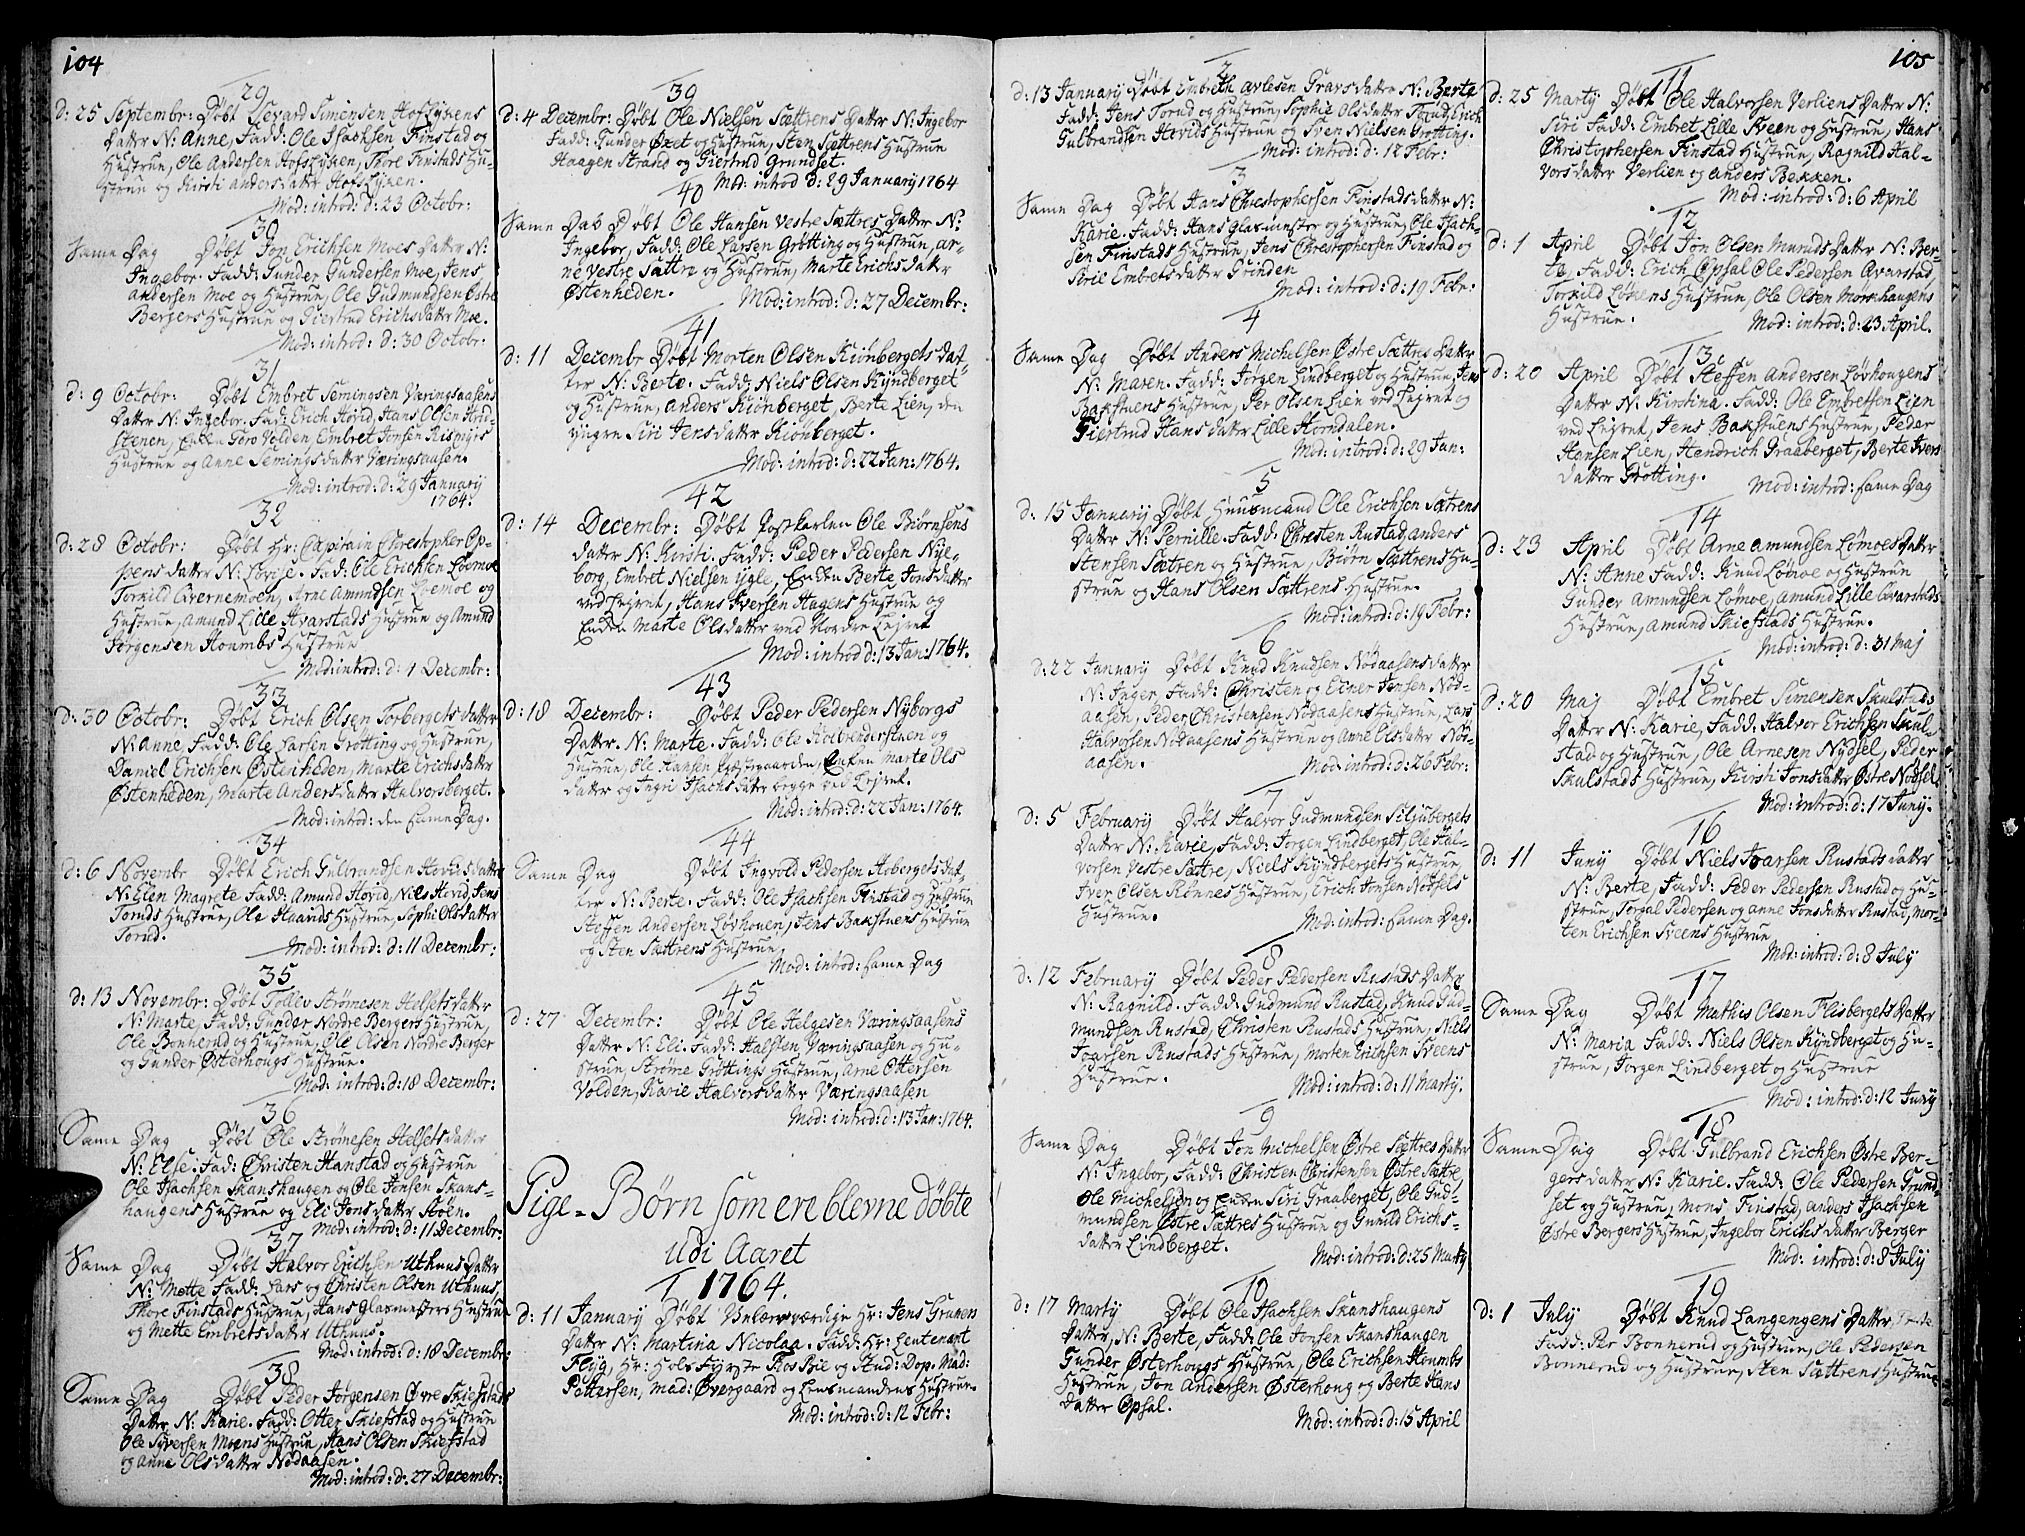 104
29
d: 25 Septembr: Døbt Sevard Simensen Hofsløkens
Datter N: Anne, Fadd: Ole Isachsen Finstad og
Hustrue, Ole Andersen Hofsløken, Thore Finstads Hu-
strue og Kirsti Andersdatter Hofsløken.
Mod: introd: d: 23 Octobr:
30
Same Dag Døbt Jon Erichsen Moes Datter N:
Ingebor. Fadd: Gunder Gundersen Moe, Jens
Andersen Moe og Hustrue, Ole Gudmundsen Østre
Bergers Hustrue og Giertrud Erichsdatter Moe.
Mod: introd: d: 30 Octobr:
31
d: 9 Octobr: Døbt Embret Semingsen Væringsaasens
Datter N: Ingebor. Fad: Erich Hovid, Hans Olsen
Enken Goro Volden, Embret Jonsen
Hustrue og Anne Semingsdatter Væringsaasen.
Mod: introd: d: 29 January
1764.
32
d: 28 Octobr: Døbt Hr: Capitain Chrestopher Op-
pens Datter N: Lovise. Fad: Ole Erichsen Loemoe
Torkild Qvernemoen, Arne Amundsen Loemoe og
Hustrue, Amund Lille Kvarstads Hustrue og Amund
Jørgensen Houmbs Hustrue
Mod: introd: d: 1 Decembr:
33
d: 30 Octobr: Døbt Erich Olsen Torbergets Datter
N: Anne, Fadd: Ole Larsen Grøtting og Hustrue,
Daniel Erichsen Østenheden, Marte Erichsdatter
Østenheden, Marte Andersdatter Halvorsberget.
Mod: introd: den same Dag.
34
d: 6 Novembr Døbt Erich Gulbrandsen Hovids datter
N: Elen Magrete Fadd: Amund Hovid, Niels Hovid, Jens
Toruds Hustrue, Ole Haavids Hustrue, Sophi Olsdatter
Torud.
Mod: introd: d: 11 Decembr:
35
d: 13 Novembr: Døbt Tollev Strømesen Helsets datter
N: Marte, Fadd: Gunder Nordre Bergers Hustrue,
Ole Bonnerud og Hustrue, Ole Olsen Nordre Berger
og Gunder Østerhougs Hustrue.
Mod: introd: d: 18 Decembr:
36
Same Dag Døbt Ole Strømesen Helsets datter
N: Else. Fad: Christen Hanstad og Hustrue
Ole Isachsen Skanshaugen og Ole Jonsen Skans-
haugens Hustrue og Eli Jonsdatter Stoen.
Mod: introd: d: 11 Decembr:
37
Same Dag Døbt Halvor Erichsen Uthuus Datter
N: Mette Fadd: Lars og Christen Olsen Uthuus,
Thore Finstads Hustrue, Hans glasmesters Hustrue
og Mette Embretsdatter Uthuus.
Mod: introd: d: 18 Decembr:
38
Same Dag Døbt Peder Jørgensen Øvre Skiefstads
Datter N: Karie. Fadd: Otter Skiefstad og Hustrue
Ole Syversen Moens Hustrue, Hans Olsen Skiefstad
og Anne Olsdatter Nødaasen.
Mod: introd: d: 27 Decembr:
39
d: 4 Decembr: Døbt Ole Nielsen Sættrens Datter N: Ingebor
Fadd: Gunder Øxet og Hustrue, Sten Sættrens Hustrue
Haagen Strand og Giertrud Grundset.
Mod: introd d: 29 January 1764
40
Same Dab Døbt Ole Hansen Vestre Sættres Datter N:
Ingebor, Fadd: Ole Larsen Grøtting og Hustrue, Ar-
ne Vestre Sættre og Hustrue, Marte Erichsdatter
Østenheden.
Mod: introd: d: 27 Decembr:
41
d: 11 Decembr Døbt Morten Olsen Kiønbergets dat-
ter N: Berte. Fadd: Niels Olsen Kyndberget
og Hustrue, Anders Kiønberget, Berte Lien, den
yngre Siri Jensdatter Kiønberget.
Mod: introd: d: 22 Jan: 1764.
42
d: 14 Decembr: Døbt Postkarlen Ole Biørnsens
datter N: Kirsti. Fadd: Peder Pedersen Nye-
borg, Embret Nielsen ygle, Enken Berte Jonsdatter
ved Lejret, Hans Iversen Hagens Hustrue og
Enken Marte Olsdatter ved Nordre Lejret
Mod: introd d: 13 Jan: 1764.
43
d: 18 Decembr: Døbt Peder Pedersen Nyborgs
Datter. N: Marte. Fadd: Ole Kolbenderstuen og
Hustrue, Ole Hansen Præstgaarden, Enken Marte Ols
datter og Ingri Isachsdatter begge ved Lejret.
Mod: introd: d: 22 Jan: 1764.
44
Same Dag Døbt Ingvold Pedersen Aabergets Dat-
ter N: Berte. Fadd: Ole Isachsen Finstad og Hustrue
Steffen Andersen Løvhouen, Jens Bakstuens Hustrue
og Sten Sættrens Hustrue,
Mod: introd: same Dag
45
d: 27 Decembr: Døbt Ole Helgesen Væringsaasens
Datter N: Eli. Fadd: Halsten Væringsaasen og Hu-
strue, Strøme Grøttings Hustrue, Arne Ottersen
Volden, Karie Halvorsdatter Væringsaasen
Mod: introd: d: 13 Jan: 1764.
Pige-Børn som ere blevne døbte
udi Aaret
1764.
1
d: 11 January Døbt Velærværdige Hr: Jens Grunen
Datter N: Martina Nicolaa. Fadd: Hr: Leutenant
Flyg, Hr: Holsfyrste Ros Brie og Stud: Dop. Mad:
Pottersen, Mad: Øvergaard og Lensmandens Hustrue.
Mod: introd: d: 12 Febr:
105
2
d: 13 January Døbt Embreth Arlesen Gravs datter N: Berte
Fadd: Jens Torud og Hustrue, Sophie Olsdatter Torud, Erich
Gulbrandsen Hovids Hustrue og Sven Nielsen Grøtting.
Mod: introd: d: 12 Febr:
3
Same Dag Døbt Hans Chrestophersen Finstads datter N:
Karie. Fadd: Hans Glasmester og Hustrue, Ole Isach-
sen Finstads Hustrue, Jens Chrestophersen Finstad og
Siril Embretsdatter Grinden
Mod: introd: d: 19 Febr:
4
Same Dag Døbt Anders Michelsen Østre Sættres Datter
N: Maren. Fadd: Jørgen Lindberget og Hustrue, Jens
Bakstuens Hustrue, Per Olsen Lien ved Lejret og
Giertrud Hansdatter Lille Horndalen.
Mod: introd: d: 29 Jan:
5
d: 15 January Døbt Huusmand Ole Erichsen Sætrens
Datter N: Pernille. Fadd: Chresten Rustad, Anders
Stensen Sætren og Hustrue, Biørn Sættrens Hu-
strue og Hans Olsen Sættrens Hustrue.
Mod: introd: d: 19 Febr:
6
d: 22 January Døbt Knud Knudsen Nødaasens datter
N: Inger, Fadd: Christen og Einer Jensen Nød-
aasen, Peder Christensen Nødaasens Hustrue, Lars
Halvorsen Nødaasens Hustrue og Anne Olsdatter Nød-
aasen.
Mod: introd: d: 26 Febr:
7
d: 5 February Døbt Halvor Gudmundsen Siljubergets
Datter N: Karie, Fadd: Jørgen Lindberget, Ole Hal-
vorsen Vestre Sættre, Niels Kyndbergets Hustrue,
Iver Olsen Rønnes Hustrue, Erich Jonsen Nødsets
Hustrue.
Mod: introd: same Dag.
8
d: 12 February Døbt Peder Pedersen Rustads Datter
N: Ragnild. Fadd: Gudmund Rustad, Knud Gud-
mundsen Rustad, Christen Rustads Hustrue, Niels
Joarsen Rustads Hustrue, Morten Erichsen Sveens
Hustrue.
Mod: introd: d: 11 Marty.
9
Same Dag Døbt Jon Michelsen Østre Sættres Datter
N: Ingebor, Fadd: Christen Christensen Østre Sættre,
Ole Michelsen og Enken Siri Graaberget, Ole Gud-
mundsen Østre Sættres Hustrue og Gunild Erichs-
datter Lindberget.
Mod: introd: d: 25 Marty
10
d: 17 Marty Døbt Ole Isachsen Skanshaugens
Datter, N: Berte, Fadd: Ole Jonsen Skanshaugen
Gunder Østerhougs Hustrue, Ole Erichsen Houmbs
Hustrue, Jon Andersen Østerhoug og Berte Hans
datter Opsal.
Mod: introd: d: 15 April
11
d: 25 Marty Døbt Ole Halvorsen Verliens Datter N:
Siri Fadd: Embret Lille Sveen og Hustrue, Hans
Christophersen Finstad Hustrue, Ragnild Hal-
vorsdatter Verlien og Anders Bekken.
Mod: introd: d: 6 April
12
d: 1 April Døbt Jon Olsen Munds Datter N: Ber-
te, Fadd: Erich Opsal Ole Pedersen Qvarstad,
Torkild Løkens Hustrue, Ole Olsen Mørkhaugens
Hustrue.
Mod: introd: d: 23 April.
13
d: 20 April Døbt Steffen Andersen Løvhougens
Datter N: Kirstina. Fadd: Ole Embretsen Lien
ved Lejret, Jens Bakstuens Hustrue, Peder
Hansen Lien, Hendrich Graaberget, Berte Ivers
datter Grøtting.
Mod: introd: same Dag
14
d: 23 April Døbt Arne Amundsen Lømoes Datter
N: Anne Fadd: Knud Lømoe og Hustrue
Gunder Amundsen Lømoe, Amund Lille Qvarstads
Hustrue, Amund Skiefstads Hustrue.
Mod: introd: d: 31 Maj
15
d: 20 Maj Døbt Embret Simensen Skulstads
Datter N: Karie, Fadd: Halvor Erichsen Skul-
stad og Hustrue, Ole Arnesen Nydsel, Peder
Skulstads Hustrue, Kirsti Jonsdatter Østre Nødset.
Mod: introd: d: 17 Juny.
16
d: 11 Juny Døbt Niels Joarsen Rustads datter
N: Berte, Fadd: Peder Pedersen Rustad og Hu-
strue, Torgal Pedersen og Anne Jonsdatter Rustad, Mor-
ten Erichsen Sveens Hustrue
Mod: introd: d: 8 July
17
Same Dag Døbt Mathis Olsen Flisbergets Datter
N: Maria Fadd: Niels Olsen Kyndberget og Hu-
strue, Jørgen Lindberget og Hustrue
Mod: introd: d: 12 Juny
18
Same Dag Døbt Gulbrand Erichsen Østre Ber-
gers datter N: Karie. Fadd: Ole Pedersen Grund-
set og Hustrue, Mons Finstad, Anders Isachsen
Østre Bergers Hustrue, Ingebor Erichsdatter Berger
Mod: introd: d: 8 July
19
d: 1 July Døbt Knud Langengens Datter,
Fadd: Per Bonnerud og Hustrue, Ole Pedersen
Bonnerud og Hustrue, Sten Sættrens Hustrue